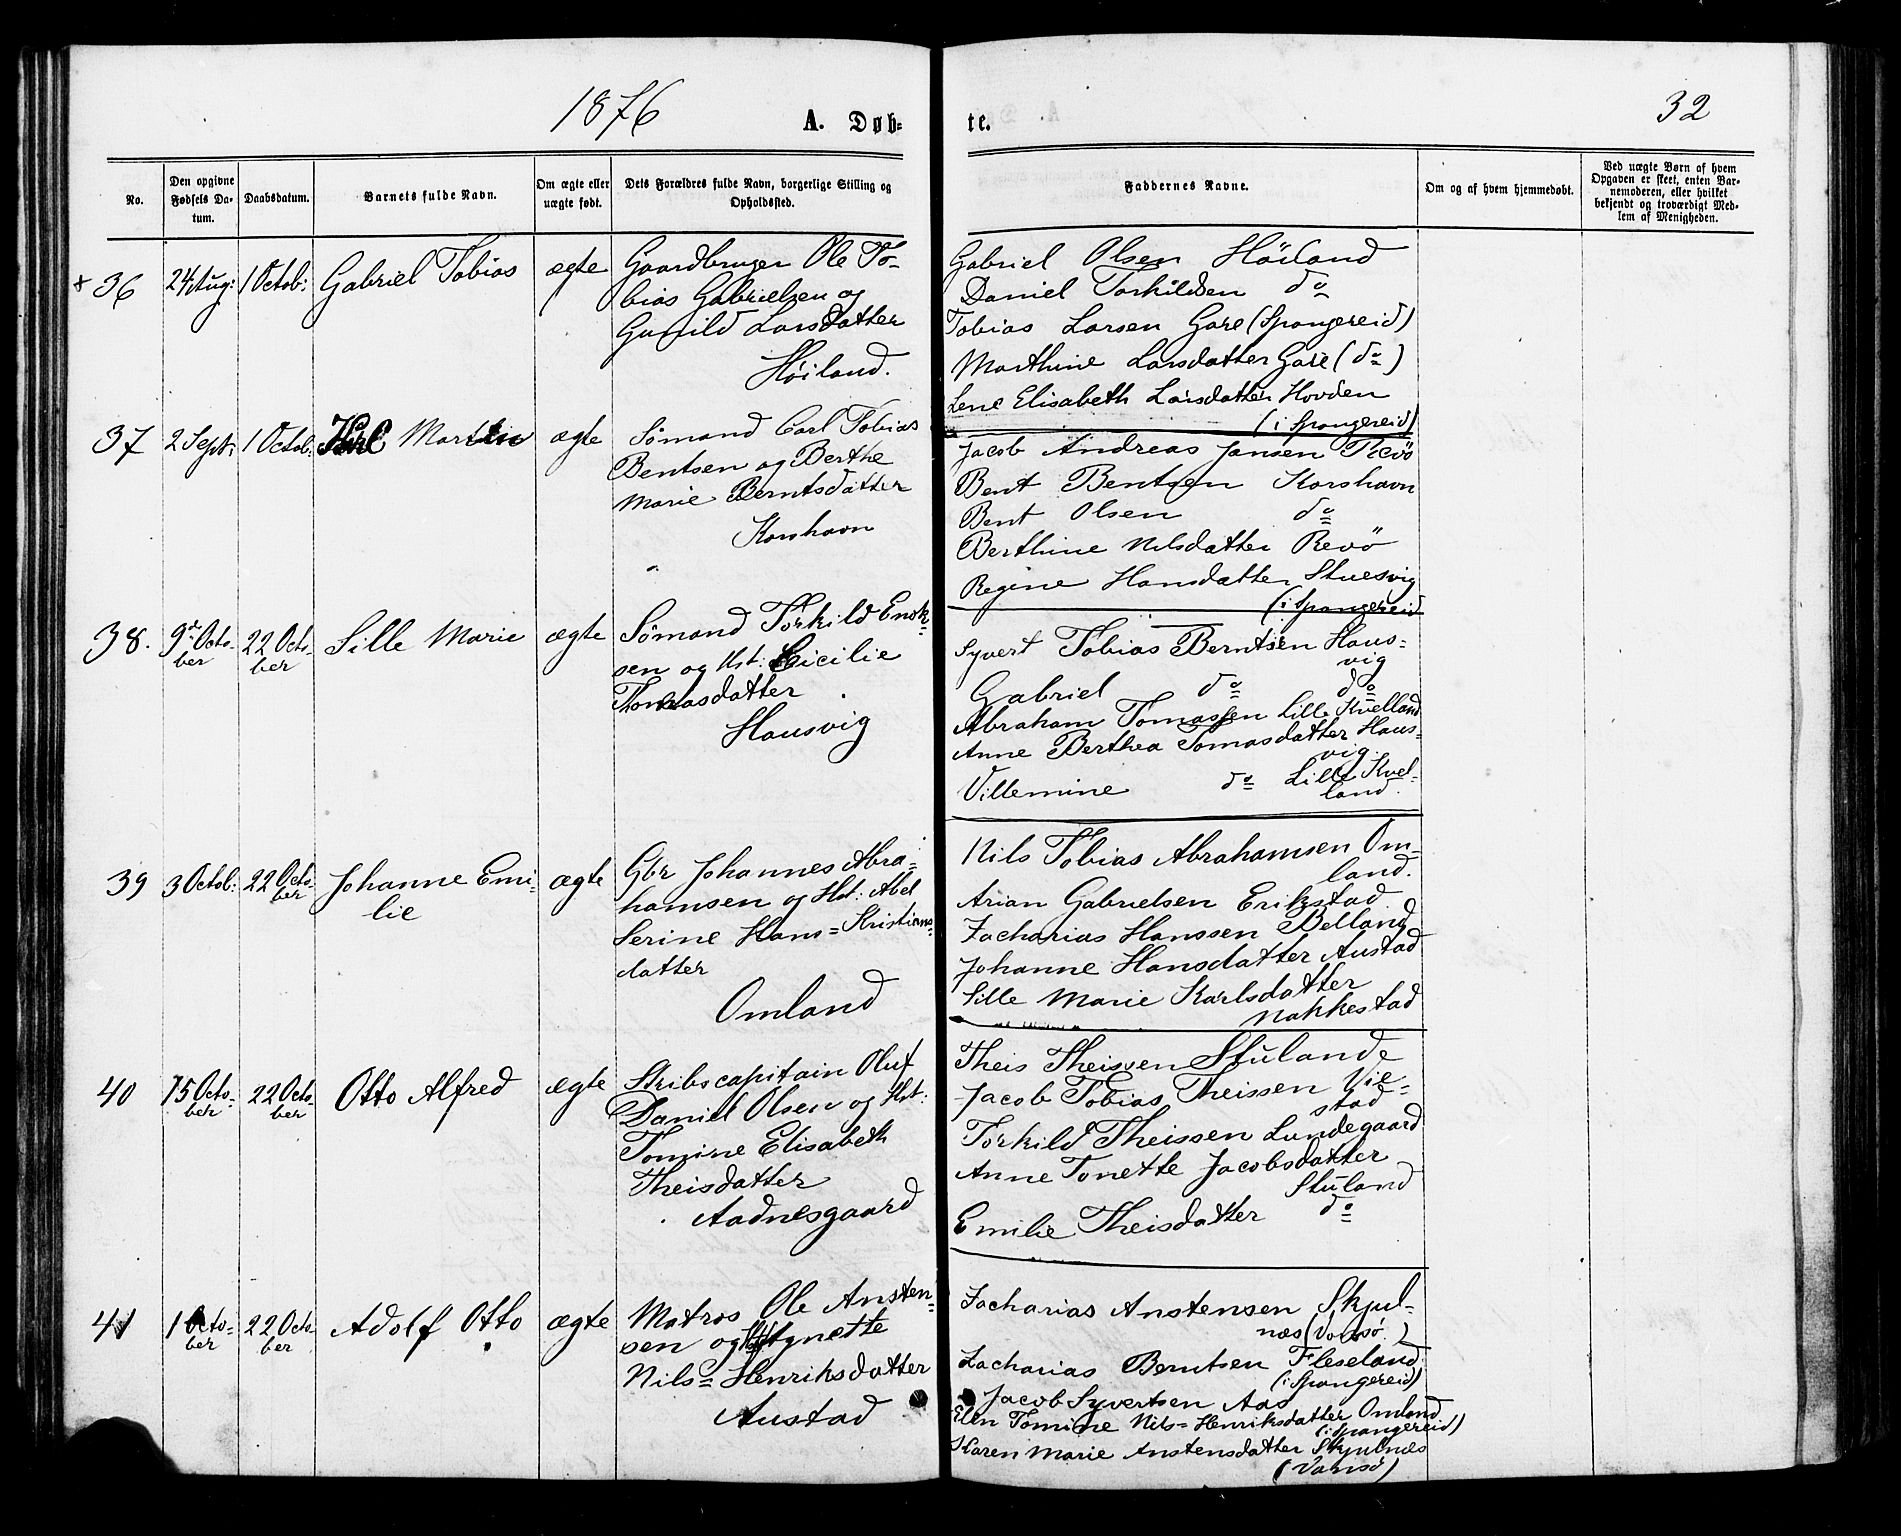 1876
A. Døb-
te.
32
No.
Den opgivne
Fødsels Da-
tum.
Daabsdatum.
Barnets fulde Navn.
Om ægte eller
uægte født.
Dets Forældres fulde Navn, borgerlige Stilling og
Opholdssted.
Faddernes Navne.
Om og af hvem hjemmedøbt.
Ved uægte Børn af hvem
Opgaven er skeet, enten Bar-
nemoderen, eller hvilket
bekjendt og troværdigt Med-
lem af Menigheden.
+ 36
24 Aug:
1 Octob:
Gabriel Tobias
ægte
Gaardbruger Ole To-
bias Gabrielsen og
Gunild Larsdatter
Höiland.
Gabriel Olsen Höiland
Daniel Torkildsen do
Tobias Larsen Gare (Spangereid)
Marthine Larsdatter Gare (do)
Lene Elisabeth Larsdatter Hovden
(i Spangereid)
37
2 Sept:
1 Octob:
Karl Martin
ægte
Sömand Carl Tobias
Bentsen og Berthe
Marie Berntsdatter
Korshavn
Jacob Andreas Jansen Revö
Bent Bentsen Korshavn
Bent Olsen do
Berthine Nilsdatter Revö
Regine Hansdatter Stuesvig
(i Spangereid
38.
9de Octo-
ber
22 Octo-
ber
Sille Marie
ægte
Sömand Torkild Enok-
sen og Hst: Cicilie
Thomasdatter
Hausvig
Syvert Tobias Berntsen Haus-
vig
Gabriel do do
Abraham Tomassen Lille Kvelland
Anne Berthea Tomasdatter Haus-
vig.
Villemine do Lille Kvel-
land.
39
3 Octob:
22 Octo-
ber
Johanne Emi-
lie
ægte
Gbr Johannes Abra-
hamsen og Hst: Abel
Serine Hans=Kristians-
datter
Omland
Nils Tobias Abrahamsen Om-
land.
Arian Gabrielsen Erikstad
Zacharias Hanssen Belland
Johanne Hansdatter Austad
Sille Marie Karlsdatter
Nakkestad
40
15 Octo-
ber
22 Octo-
ber
Otto Alfred
ægte
Skibscapitain Oluf
Daniel Olsen og Hst:
Tomine Elisabeth
Theisdatter
Aadnesgaard
Theis Theissen Stulande
Jacob Tobias Theissen Vie-
stad
Torkild Theissen Lundegaard
Anne Tonette Jacobsdatter
Stuland
Emilie Theisdatter do
41
1 Octo-
ber
22 Octo-
ber
Adolf Otto
ægte
Matros Ole Ansten-
sen og Hst: Agnette
Nils=Henriksdatter
Austad
Zacharias Anstensen Skjul-
næs (Vansø)
Zacharias Berntsen Fleseland
(i Spangereid)
Jacob Syvertsen Aas
Elen Tomine Nils=Henriksdatter Omland
(i Spangereid)
Karen Marie Anstensdatter Skjulnes
(Vansö)